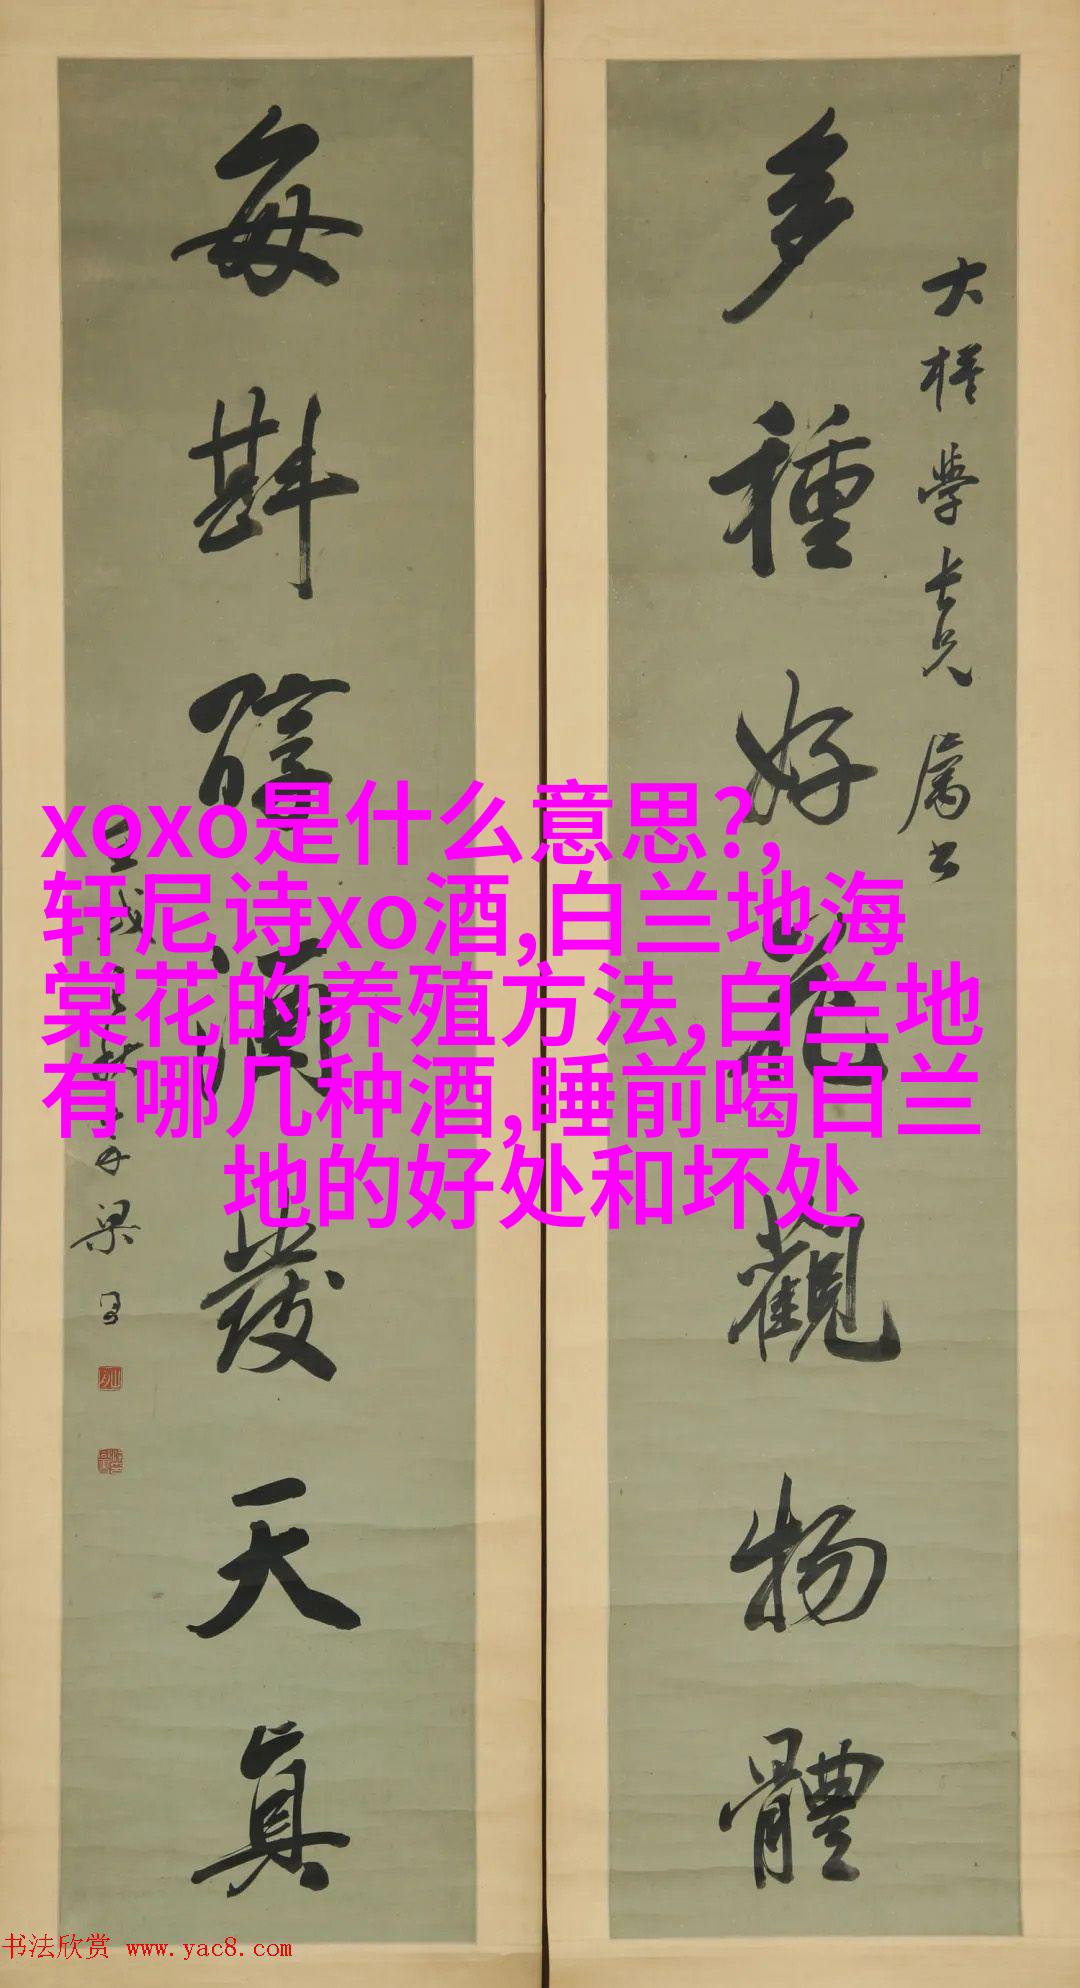 多種好花觀物體
大樑學長兄屬書
每斟醇酒發天真
梁
xoxo是什么意思?,
轩尼诗xo酒,白兰地海
棠花的养殖方法,白兰地
有哪几种酒,睡前喝白兰
地的好处和坏处
书法欣赏 www.yac8.com